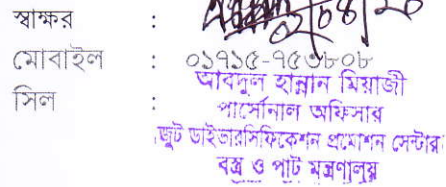 স্বাক্ষর :
মোবাইল : ০১৭১৫-৭৫৬৮০৮
সিল :
আবদুল হান্নান মিয়াজী
পার্সোনাল অফিসার
জুট ডাইভারসিফিকেশন প্রমোশন সেন্টার
বস্ত্র ও পাট মন্ত্রণালয়